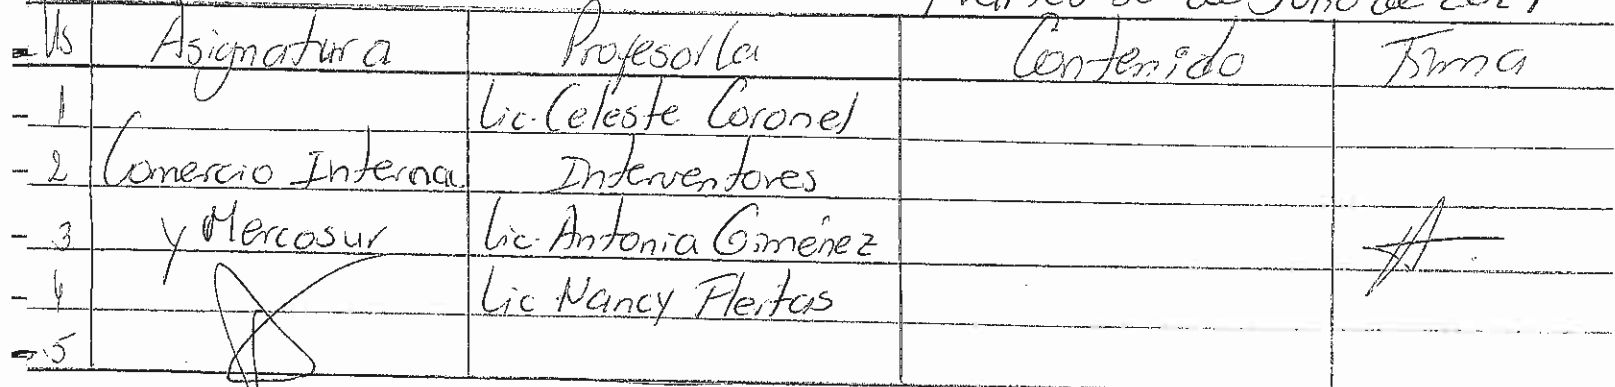 de Julio de 202
Hs Asignatura Profesor/a Contenido Firma
1 Lic. Celeste Coronel
2 Comercio Interna Interventores
3 y Mercosur Lic. Antonia Giménez
4 Lic Nancy Fleitas
5